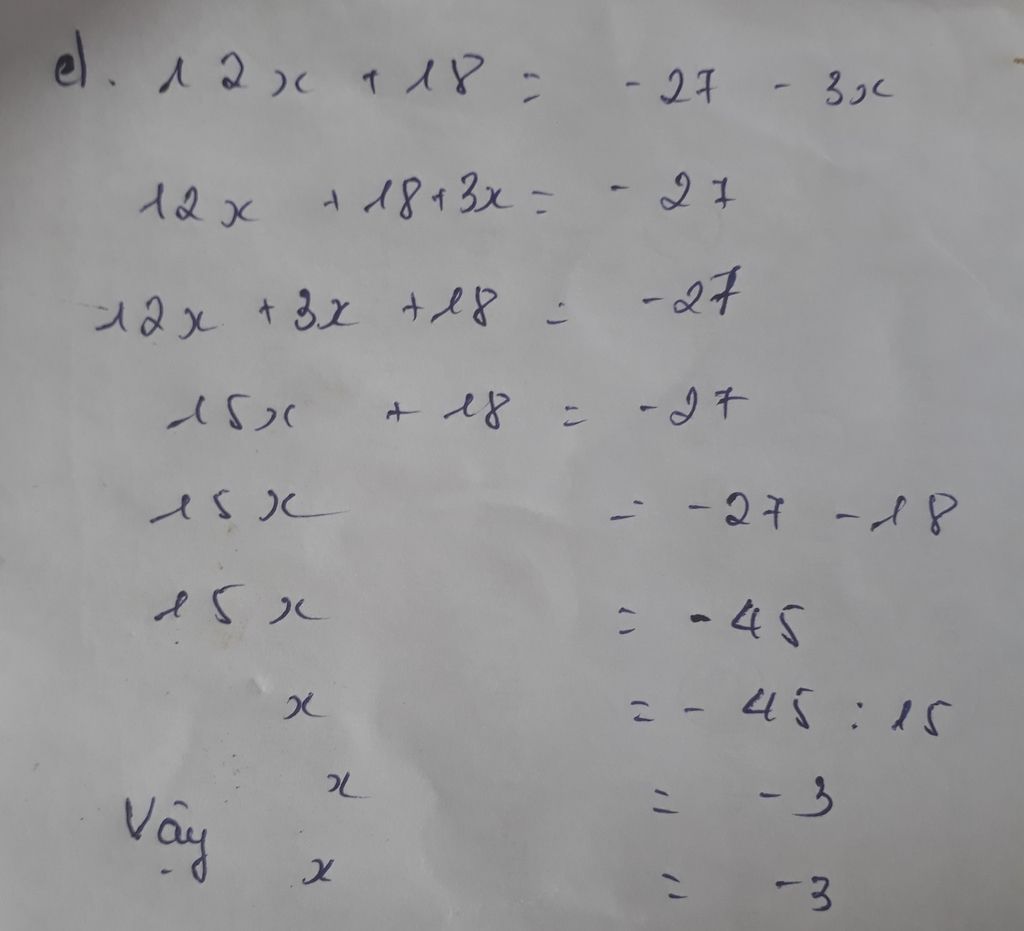 e). 12x + 18 = - 27 - 3x
12x + 18 + 3x = - 27
12x + 3x + 18 = - 27
15x + 18 = - 27
15x = - 27 - 18
15x = - 45
x = - 45 : 15
x = - 3
Vậy x = - 3